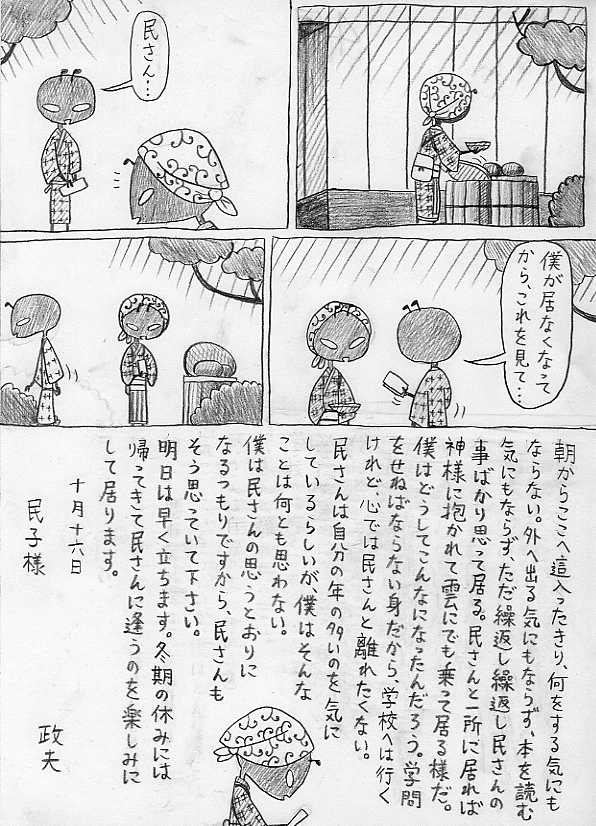 民さん…
僕が居なくなって
から、これを見て…
朝からここへ這入ったきり、何をする気にも
ならない。外へ出る気にもならず、本を読む
気にもならず、ただ繰返し繰返し民さんの
事ばかり思って居る。民さんと一所に居れば
神様に抱かれて雲にでも乗って居る様だ。
僕はどうしてこんなになったんだろう。学問
をせねばならない身だから、学校へは行く
けれど、心では民さんと離れたくない。
民さんは自分の年の多いのを気に
しているらしいが、僕はそんな
ことは何とも思わない。
僕は民さんの思うとおりに
なるつもりですから、民さんも
そう思っていて下さい。
明日は早く立ちます。冬期の休みには
帰ってきて民さんに逢うのを楽しみに
して居ります。
十月十六日
政夫
民子様